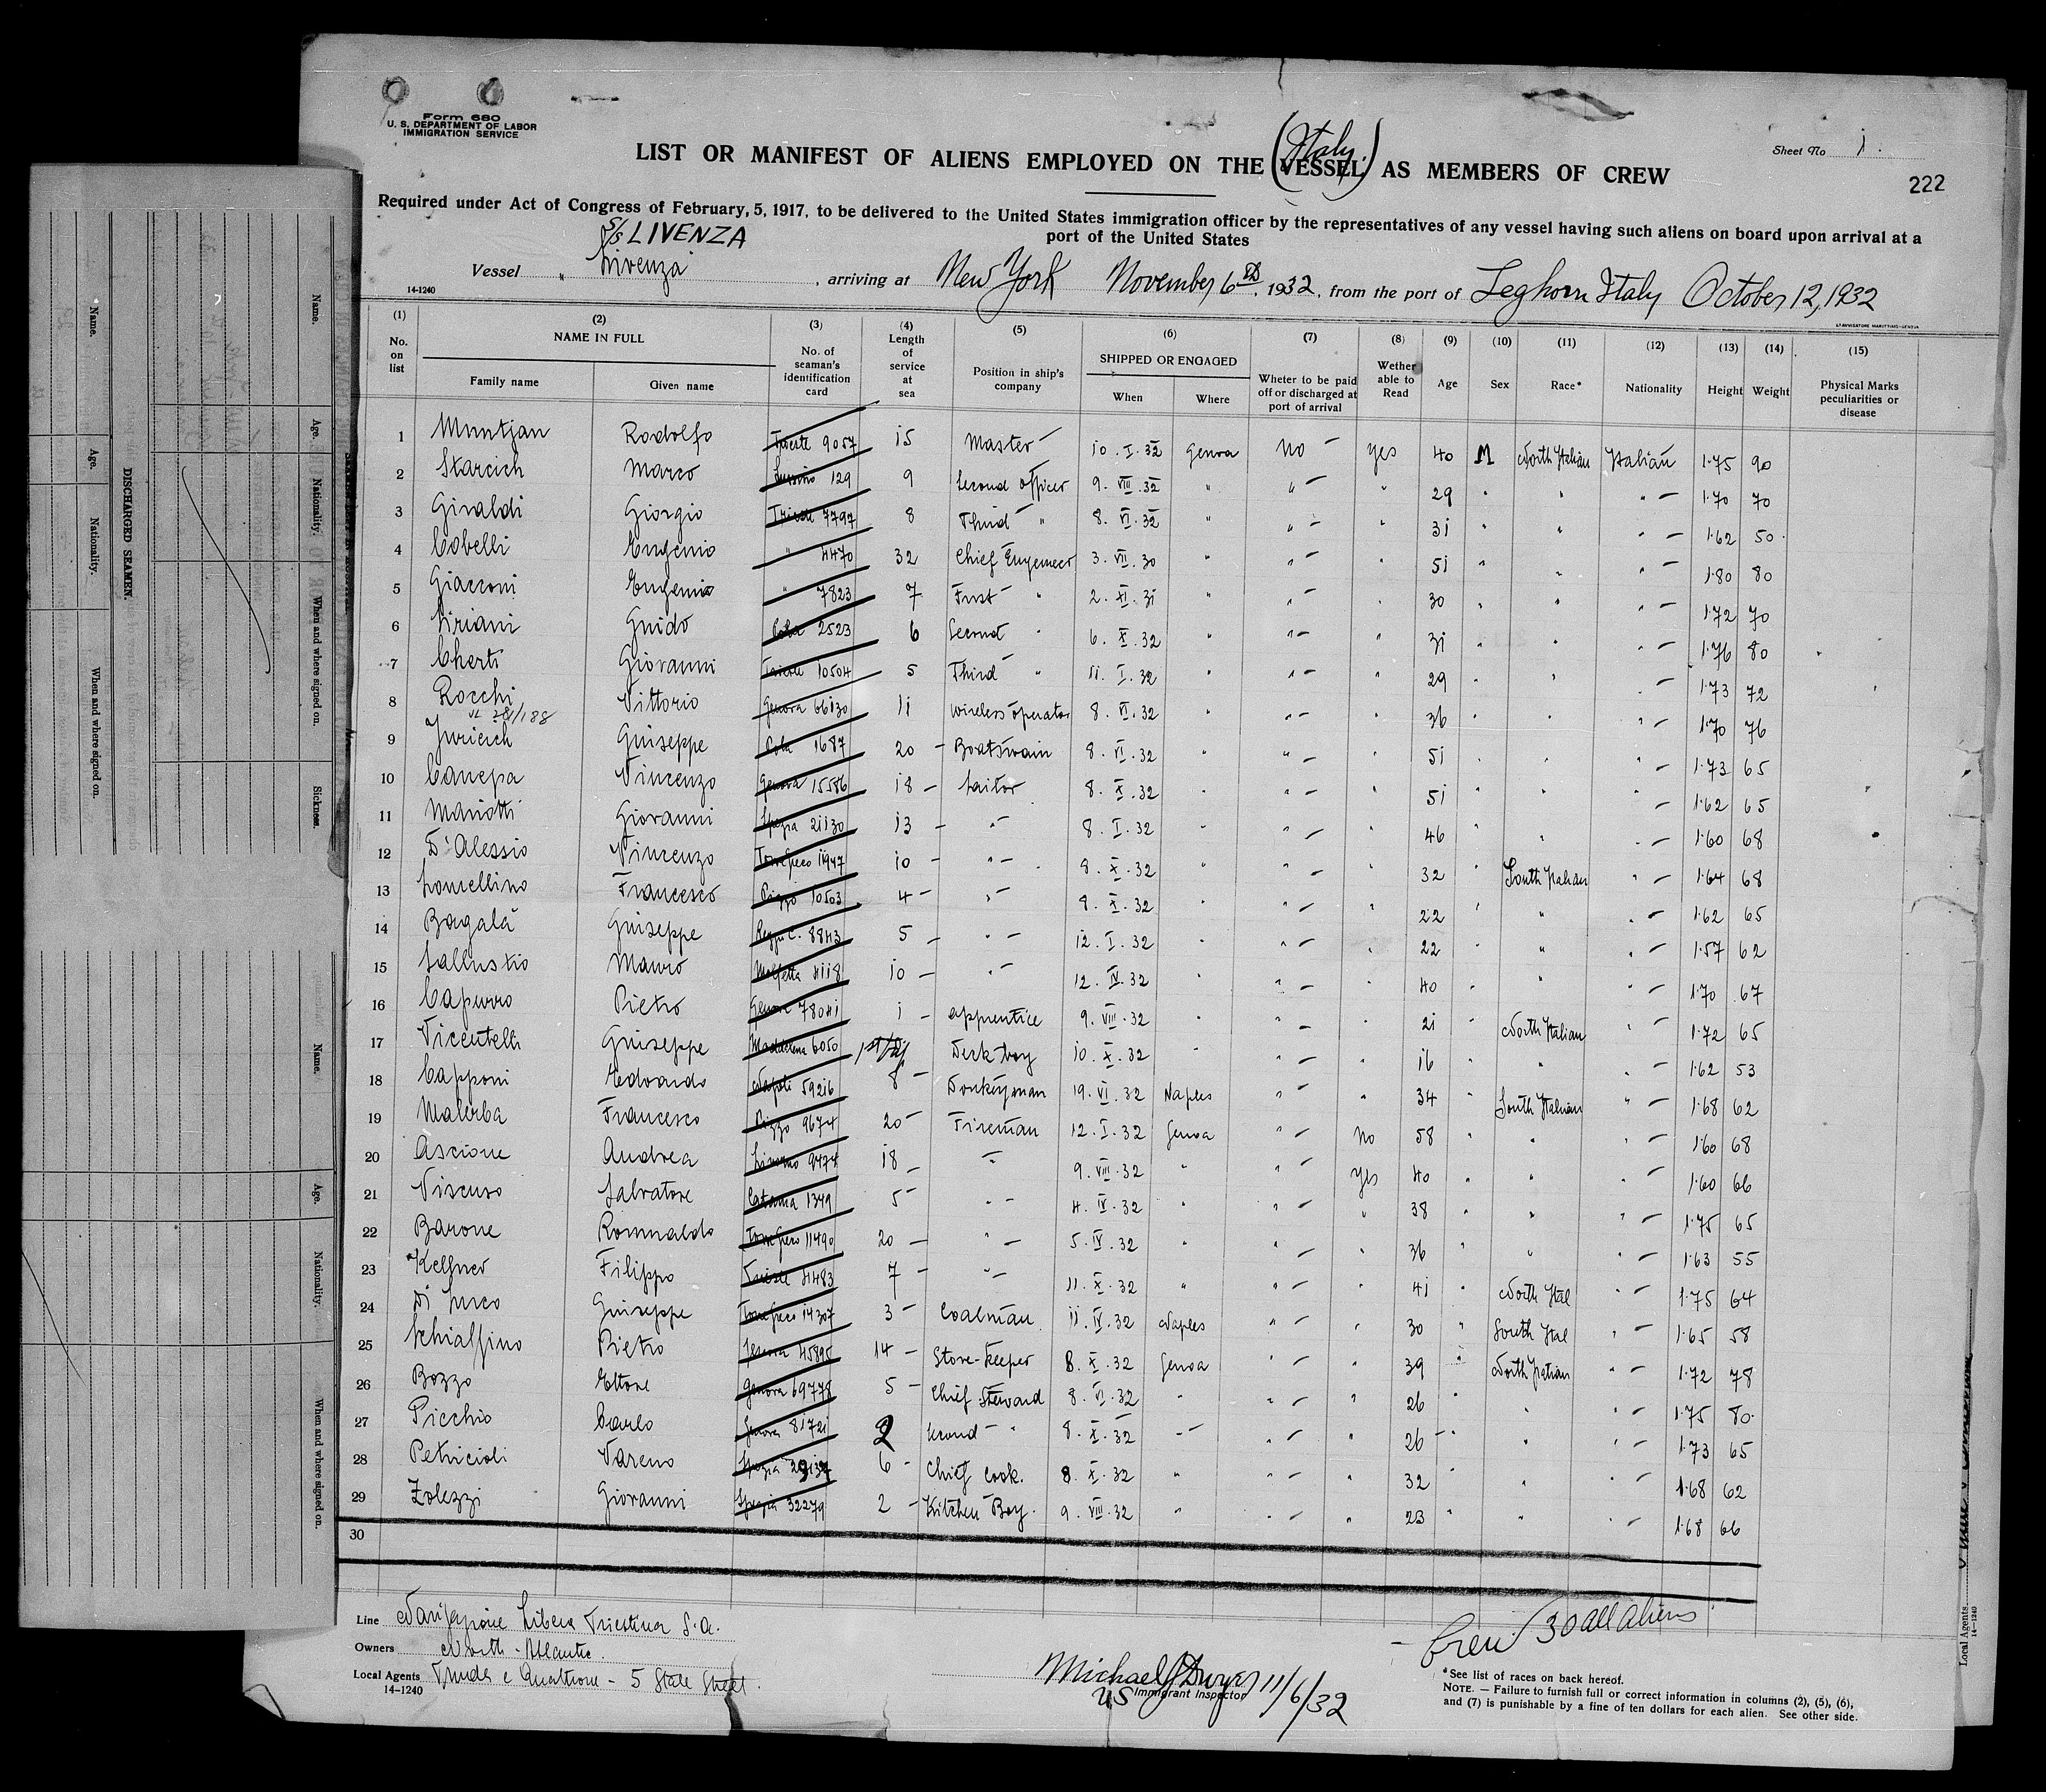 Form 680
U. S. DEPARTMENT OF LABOR
IMMIGRATION SERVICE
Sheet No 1.
222
(Italy.)
LIST OR MANIFEST OF ALIENS EMPLOYED ON THE VESSEL AS MEMBERS OF CREW
Required under Act of Congress of February, 5, 1917, to be delivered to the United States immigration officer by the representatives of any vessel having such aliens on board upon arrival at a
port of the United States
S/S LIVENZA
Vessel " Livenza , arriving at New York November 6th, 1932, from the port of Leghorn Italy October 12, 1932
14-1240
(1) No. on list (2) NAME IN FULL Family name Given name (3) No. of seaman's identification card (4) Length of service at sea (5) Position in ship's company (6) SHIPPED OR ENGAGED When Where (7) Wheter to be paid off or discharged at port of arrival (8) Wether able to Read (9) Age (10) Sex (11) Race* (12) Nationality (13) Height (14) Weight (15) Physical Marks peculiarities or disease
1 Muntjan Rodolfo Trieste 9057 15 Master 10. I. 32 Genoa No Yes 40 M North Italian Italian 1.75 90
2 Starcich Marco 129 9 Second Officer 9. VIII. 32 " " " 29 " " " 1.70 70
3 Giraldi Giorgio Trieste 7797 8 Third " 8. VI. 32 " " " 31 " " " 1.62 50
4 Cobelli Eugenio " 4470 32 Chief Engeneer 3. VII. 30 " " " 51 " " " 1.80 80
5 Giacconi Eugenio " 7823 7 First " 2. XI. 31 " " " 30 " " " 1.72 70
6 Viriani Guido Pola 2523 6 Second " 6. X. 32 " " " 31 " " " 1.76 80
7 Cherti Giovanni Trieste 10504 5 Third " 11. I. 32 " " " 29 " " " 1.73 72
8 Rocchi Vittorio Genova 66130 11 Wireless operator 8. VI. 32 " " " 36 " " " 1.70 76
9 Juricich Guiseppe Pola 1687 20 Boatswain 8. VI. 32 " " " 51 " " " 1.73 65
10 Canepa Vincenzo Genova 15586 18 Sailor 8. X. 32 " " " 51 " " " 1.62 65
11 Mariotti Giovanni Spezia 21130 13 " 8. I. 32 " " " 46 " " " 1.60 68
12 D'Alessio Vincenzo Torre Greco 11947 10 " 8. X. 32 " " " 32 " South Italian " 1.64 68
13 Lomellino Francesco Pizzo 10503 4 " 8. X. 32 " " " 22 " " " 1.62 65
14 Bagalà Guiseppe Reggio C. 8843 5 " 12. I. 32 " " " 22 " " " 1.57 62
15 Sallustio Mauro Molfetta 4118 10 " 12. IV. 32 " " " 40 " " " 1.70 67
16 Capurro Pietro Genova 78041 1 apprentice 9. VIII. 32 " " " 21 " North Italian " 1.72 65
17 Vicentelli Guiseppe Maddalena 6050 Deck boy 10. X. 32 " " " 16 " " " 1.62 53
18 Capponi Edoardo Napoli 59216 8 Donkeyman 19. VI. 32 Naples " " 34 " South Italian " 1.68 62
19 Malerba Francesco Pizzo 9674 20 Fireman 12. I. 32 Genoa " No 58 " " " 1.60 68
20 Ascione Andrea Livorno 9474 18 " 9. VIII. 32 " " Yes 40 " " " 1.60 66
21 Viscuso Salvatore Catania 1349 5 " 4. IV. 32 " " " 38 " " " 1.75 65
22 Barone Romualdo Torre Greco 11490 20 " 5. IV. 32 " " " 36 " " " 1.63 55
23 Kellner Filippo Trieste 4483 7 " 11. X. 32 " " " 41 " North Ital " 1.75 64
24 Di Luco Guiseppe Torre Greco 14307 3 Coalman 11. IV. 32 Naples " " 30 " South Ital " 1.65 58
25 Schiaffino Pietro Genova 45895 14 Store-Keeper 8. X. 32 Genoa " " 39 " North Italian " 1.72 78
26 Bozzo Ettore Genova 69778 5 Chief Steward 8. VI. 32 " " " 26 " " " 1.75 80
27 Picchio Carlo Genova 81721 2 Second " 8. X. 32 " " " 26 " " " 1.73 65
28 Petricioli Vareno Spezia 6 Chief cook. 8. X. 32 " " " 32 " " " 1.68 62
29 Zolezzi Giovanni Spezia 32279 2 Kitchen Boy. 9. VIII. 32 " " " 23 " " " 1.68 66
30
Line Navigazione Libera Triestina S.A.
Owners North-Atlantic.
Local Agents - 5 State Street.
14-1240
Crew 30 all aliens
Michael J Dwyer 11/6/32
US Immigrant Inspector
*See list of races on back hereof.
NOTE. — Failure to furnish full or correct information in columns (2), (5), (6),
and (7) is punishable by a fine of ten dollars for each alien. See other side.
DISCHARGED SEAMEN.
Name. Age. Nationality. When and where signed on.
Name. Age. Nationality. When and where signed on. Sickness.
Name. Age. Nationality. When and where signed on.
Local Agents
14-1240